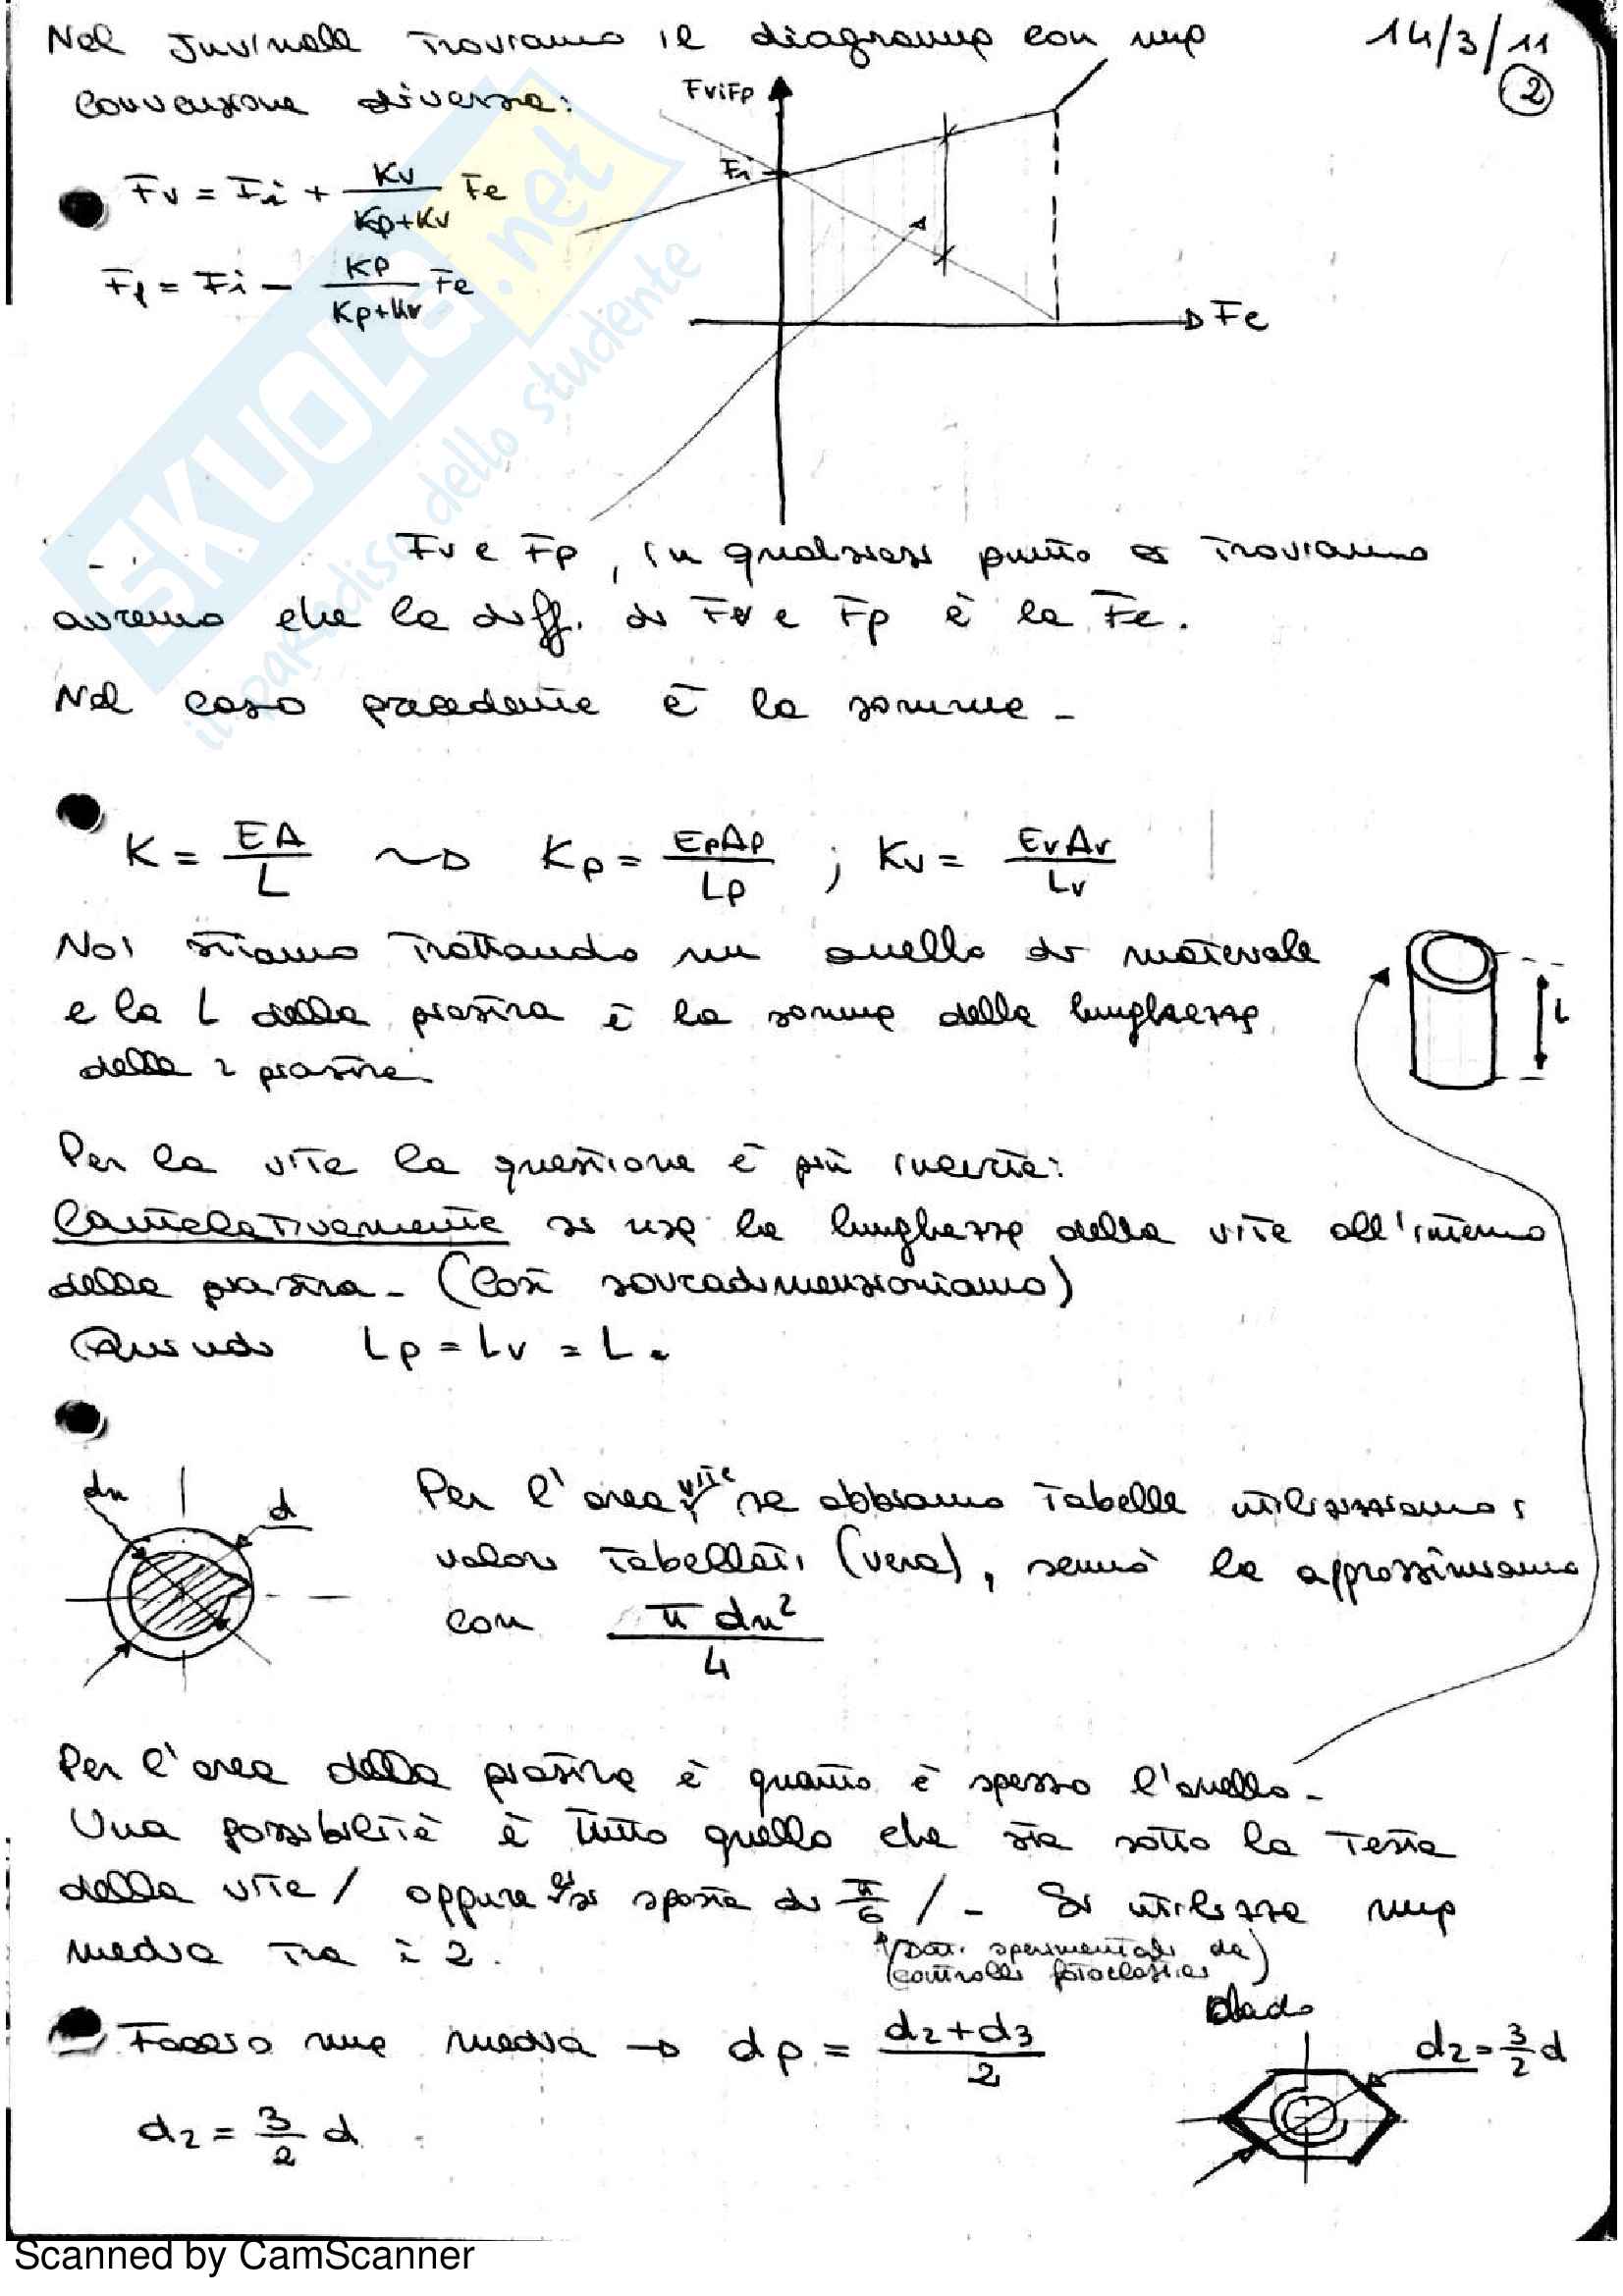 Nel Juvinall troviamo il diagramma con una
14/3/11
2
convenzione diversa:
Fv = Fi + Kv/(Kp+Kv) Fe
Fp = Fi - Kp/(Kp+Kv) Fe
Fv;Fp
Fi
Fe
Fv e Fp, in qualsiasi punto ci troviamo
avremo che la diff. di Fv e Fp è la Fe.
Nel caso precedente è la somma -
K = EA/L ~> Kp = EpAp/Lp ; Kv = EvAv/Lv
Noi stiamo trattando un anello di materiale
e la L della piastra è la somma delle lunghezze
delle 2 piastre.
L
Per la vite la questione è più incerta:
Cautelativamente si usa la lunghezza della vite all'interno
della piastra - (Così sovradimensioniamo)
Quindi Lp = Lv = L.
dn
d
Per l'area vite se abbiamo tabelle utilizziamo i
valori tabellati (vera), sennò la approssimiamo
con π dn²/4
Per l'area della piastra è quanto è spesso l'anello -
Una possibilità è tutto quello che sta sotto la testa
della vite / oppure ci si sposta di π/6 / - Si utilizza una
media tra i 2.
(dati sperimentali da
controlli fotoelastici)
Faccio una media → dp = (d2+d3)/2
Dado
d2 = 3/2 d
d2 = 3/2 d
SKUOLA.net
il paradiso dello studente
Scanned by CamScanner